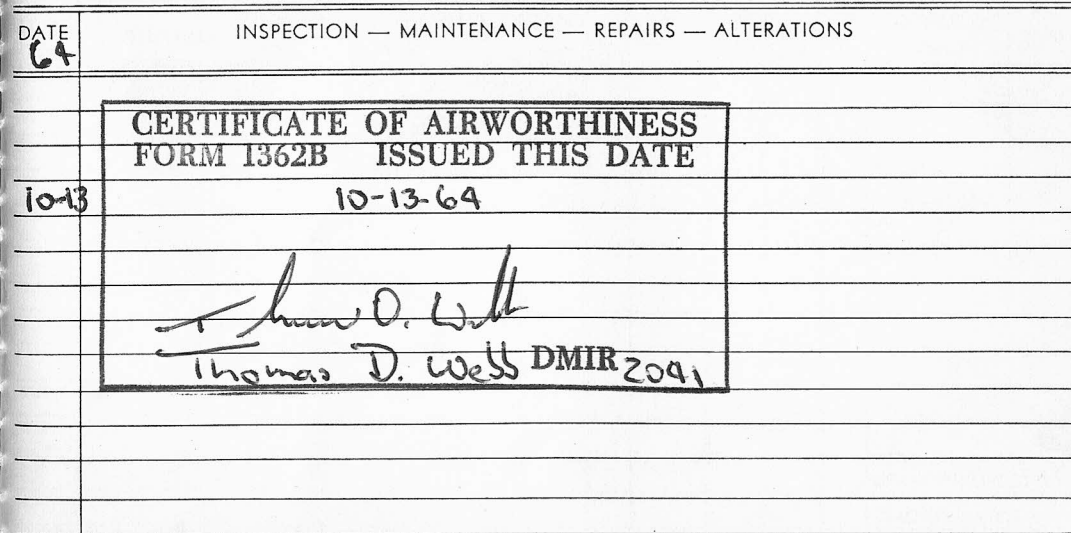 DATE INSPECTION — MAINTENANCE — REPAIRS — ALTERATIONS
64
CERTIFICATE OF AIRWORTHINESS
FORM 1362B ISSUED THIS DATE
10-13 10-13-64
Thomas D. Webb
Thomas D. Webb DMIR 2041